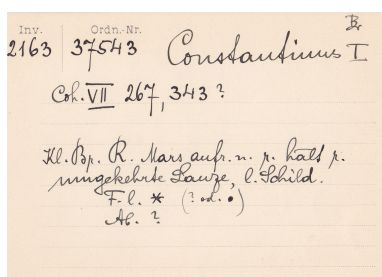 Br
Inv. Ordn.-Nr.
2163 37543 Constantinus I
Coh. VII 267, 343 ?
Kl. Br. R. Mars aufr. n. r. hält r.
umgekehrte Lanze, l. Schild.
F. l. * (? od. •)
Ab. ?